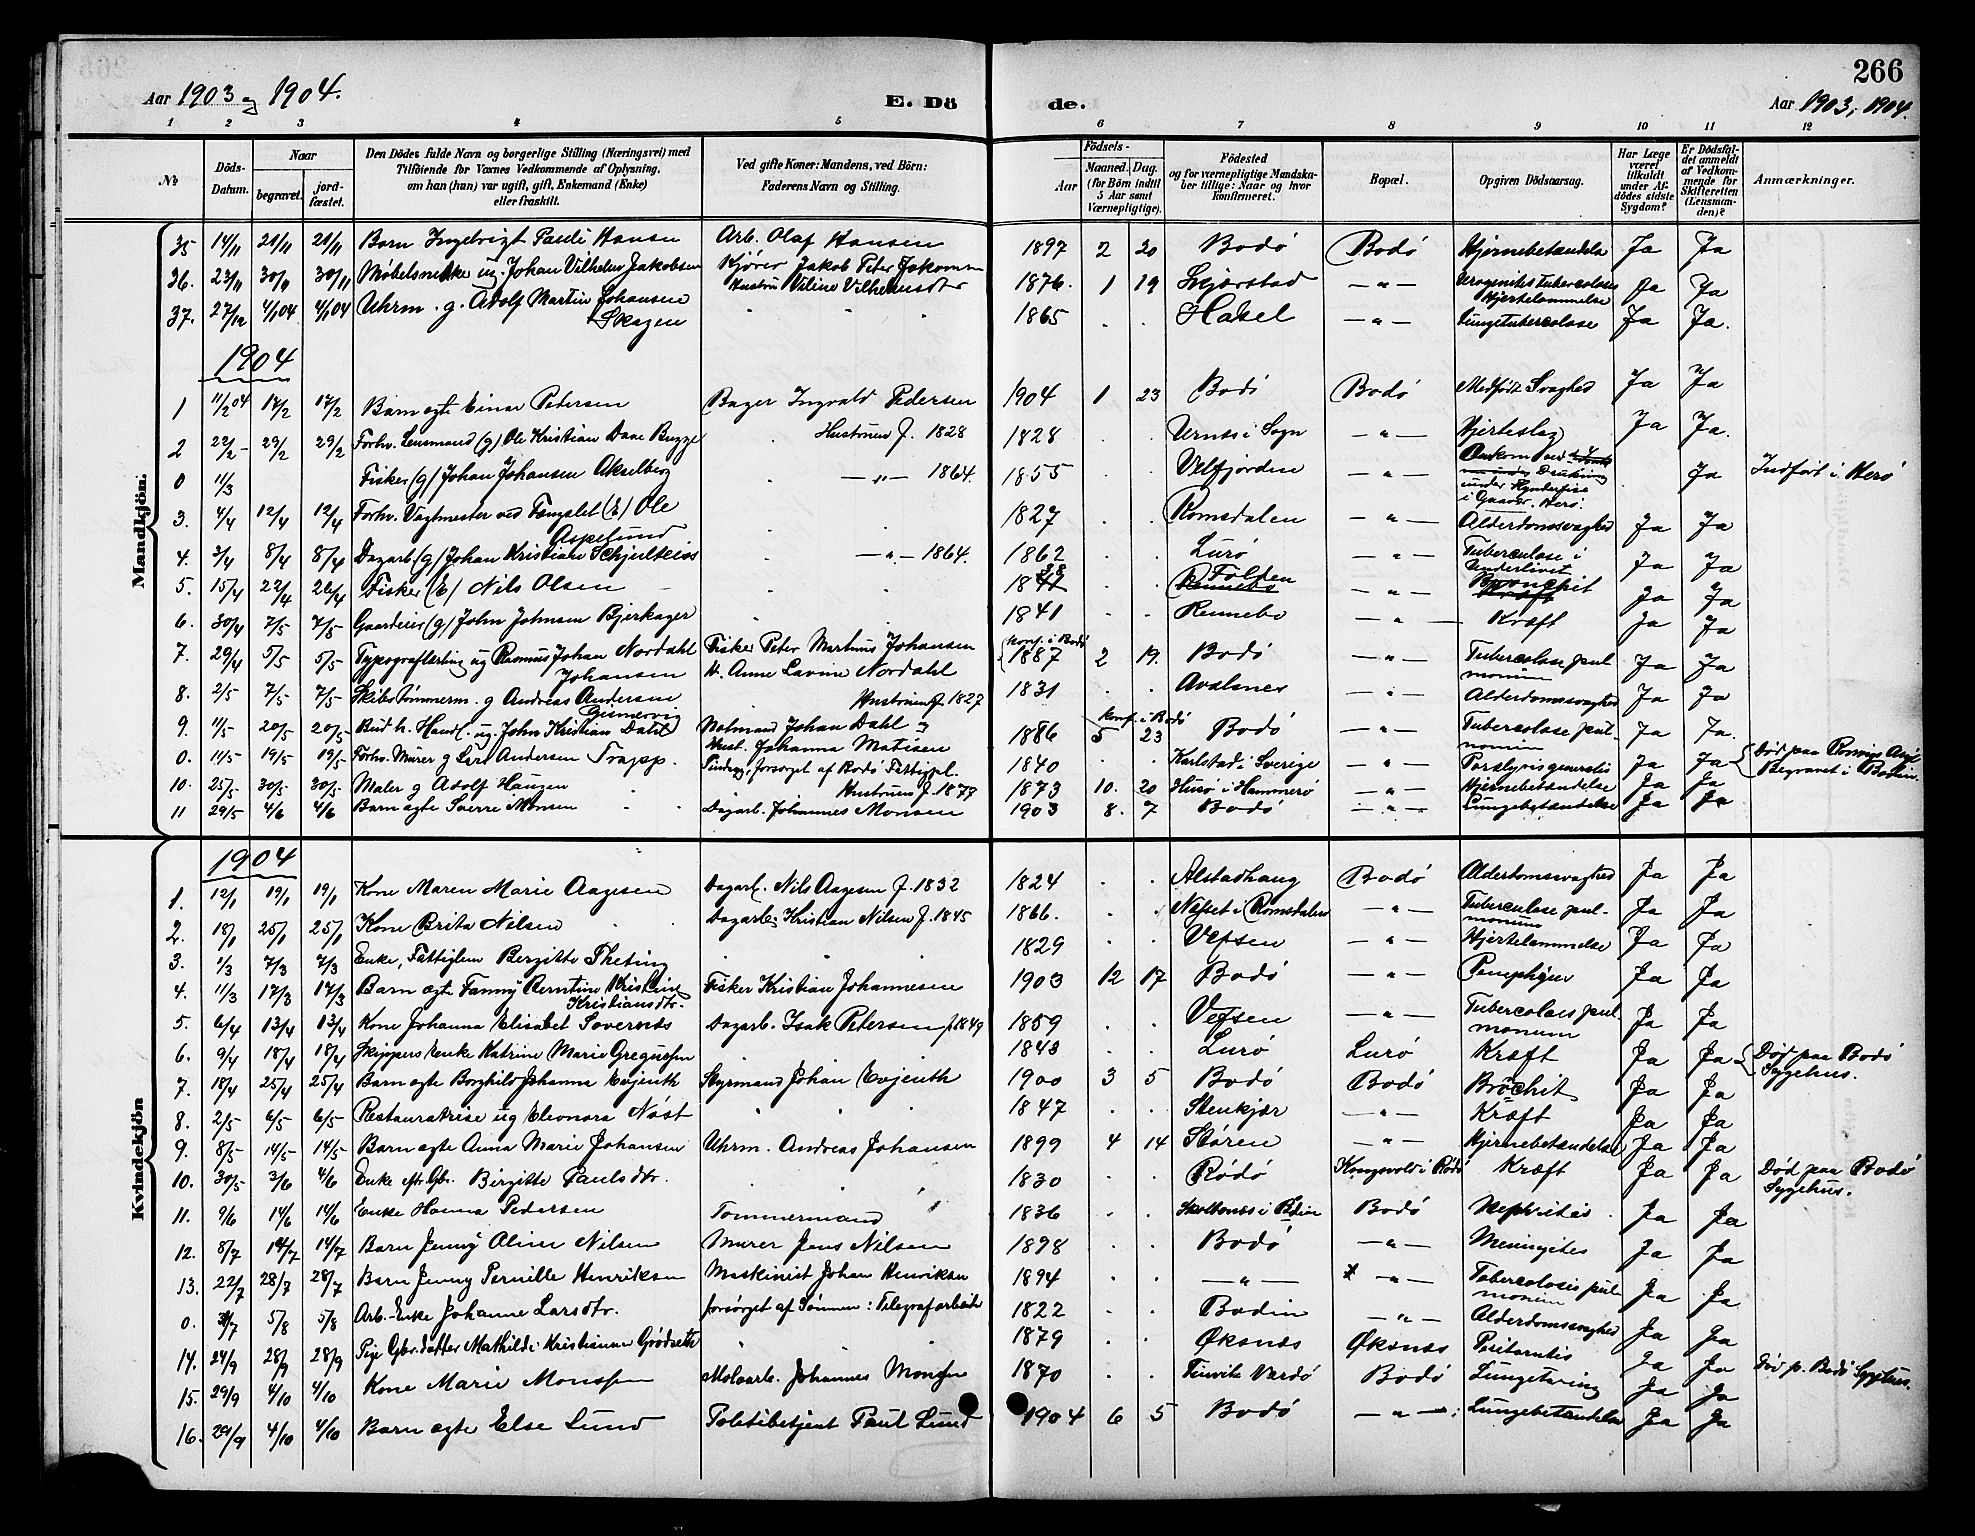 266
Aar 1903 og 1904.
E. Dö
de.
Aar 1903, 1904.
1 2 3 4 5 6 7 8 9 10 11 12
№
Döds-Datum.
Naar
begravet.
jord-fæstet.
Den Dödes fulde Navn og borgerlige Stilling (Næringsvei) med
Tilföiende for Voxnes Vedkommende af Oplysning,
om han (hun) var ugift, gift, Enkemand (Enke)
eller fraskilt.
Ved gifte Koner: Mandens, ved Börn:
Faderens Navn og Stilling.
Födsels-
Aar
Maaned. Dag.
(for Börn indtil
5 Aar samt
Værnepligtige).
Födested
og for værnepligtige Mandska-
ber tillige: Naar og hvor
konfirmeret.
Bopæl.
Opgiven Dödsaarsag.
Har Læge
været
tilkaldt
under Af-
dödes sidste
Sygdom?
Er Dödsfal-
det anmeldt
af Vedkom-
mende for
Skifteretten
(Lensman-
den)?
Anmærkninger.
Mandkjön.
35 14/11 21/11 21/11 Barn Ingebrigt Pauli Hansen Arb. Olaf Hansen 1897 2 20 Bodö Bodö Hjernebetændelse Ja Ja
36. 23/11 30/11 30/11 Möbelsnekker ug. Johan Vilhelm Jakobsen Kjörer Jakob Peter Jakobsen Hustru Viline Vilhelmsdtr 1876. 1 19 —"— Urogenitstuberculose Hjertelammelse Ja Ja
37. 27/12 4/1 04 4/1 04 Uhrm. g. Adolf Martin Johansen Skogen 1865 . . —"— Lungetuberculose Ja Ja.
1904
1 11/2 04 17/2 17/2 Barn ægte Einar Petersen Bager Ingvald Pedersen 1904 1 23 Bodö Bodö Medfödt Svaghed Ja Ja
2 22/2 29/2 29/2 Forhv. Lensmand (g) Ole Kristian Dase Bugge Hustruen f. 1828 1828 . . Urnes i Sogn —"— Hjerteslag Ja Ja.
0 11/3 Fisker (g) Johan Johansen Akselberg —"— 1864. 1855 . Velfjorden —"— Omkom ved Drukning under i Ja Indfört i Herö
3. 4/4 12/4 12/4 Forhv. Vagtmester ved Fængslet (E) Ole Aspelund 1827 . . Romsdalen —"— Alderdomssvaghed Ja Ja
4. 3/4 8/4 8/4 Dagarb (g) Johan Kristian —"— 1864. 1862 . . Lurö —"— Tuberculose i Underlivet Ja Ja
5. 15/4 22/4 22/4 Fisker (E) Nils Olsen 1828 . . Folden —"— Bronchit Ja Ja
6. 30/4 7/5 7/5 Gaardeier (g) John Johnsen Bjerkager 1841 . . Rennebo —"— Kræft Ja Ja
7. 29/4 5/5 5/5 Typograflærling ug Rasmus Johan Nordahl Johansen Fisker Peter Martinus Johansen H. Anne Lavine Nordahl konf. i Bodö 1887 2 19. Bodö —"— Tuberculose pulmonum Ja Ja
8. 2/5 7/5 7/5 Skibstømmerm. g Andreas Andersen Hustruen f. 1827 1831 . . Avalsnes —"— Alderdomssvaghed Ja Ja
9. 11/5 20/5 20/5 Bud h. Handl. ug. John Kristian Dahl Notmand Johan Dahl og Hust. Johanna Matisen konf. i Bodö 1886 5 23 Bodö —"— Tuberculose pulmonum Ja Ja.
0. 11/5 19/5 19/5 Forhv. Murer g Lars Andersen Trapp. forsörget af Bodö Fattigpl. 1840 . . Karlstad i Sverige —"— Paralysis generalis Ja Ja Död paa Asyl Begravet i Bodin
10. 25/5 30/5 30/5 Maler g Adolf Haugen Hustruen f. 1879 1873 10. 20 Husö i Hammerö —"— Hjernebetændelse Ja Ja
11 29/5 4/6 4/6 Barn ægte Sverre Monsen Dagarb. Johannes Monsen 1903 8. 7 Bodö —"— Lungebetændelse Ja Ja
Kvindekjön
1904
1. 12/1 19/1 19/1 Kone Maren Marie Aagesen Dagarb. Nils Aagesen f. 1832 1824 . . Alstadhaug Bodö Alderdomssvaghed Ja Ja
2. 18/1 25/1 25/1 Kone Brita Nilsen Dagarb. Kristian Nilsen f. 1845 1866. . . Nesset i Romsdalen —"— Tuberculose pulmonum Ja Ja
3. 1/3 7/3 7/3 Enke, Fattiglem Bergitte Theting 1829 . . Vefsen —"— Hjertelammelse Ja Ja
4. 11/3 17/3 17/3 Barn ægte Fanny Berntine Kristine Kristiansdtr. Fisker Kristian Johannesen 1903 12 17 Bodö —"— Ja Ja
5. 6/4 13/4 13/4 Kone Johanna Elisabet Dagarb. Isak Petersen f. 1849 1859 . . Vefsen —"— Tuberculoses pulmonum Ja Ja
6. 9/4 18/4 18/4 Skippers enke Katrine Marie Gregussen 1843 . . Lurö Lurö Kræft Ja Ja Död paa Bodö Sygehus.
7. 18/4 25/4 25/4 Barn ægte Borghild Johanna Evjenth Styrmand Johan Evjenth 1900 3 5 Bodö Bodö Brochit Ja Ja
8. 2/5 6/5 6/5 Restauratrise ug Eleonora Nöst 1847 . . Stenkjær —"— Kræft Ja Ja
9. 8/5 14/5 14/5 Barn ægte Anna Marie Johansen Uhrm. Andreas Johansen 1899 4 14 Stören —"— Hjernebetændelse Ja Ja
10. 30/5 3/6 4/6 Enke eftr. Gbr. Birgitte Paulsdtr. 1830 . . Rödö Kongsvold i Rödö Kræft Ja Ja Död paa Bodö Sygehus.
11. 9/6 14/6 14/6 Enke Hanna Pedersen Tømmermand 1836 . . i Bodin Bodö Nephritis Ja Ja
12. 8/7 14/7 14/7 Barn Jenny Aline Nilsen Murer Jens Nilsen 1898 . . Bodö —"— Meningites Ja Ja
13. 22/7 28/7 28/7 Barn Jenny Pernille Henriksen Maskinist Johan Henriksen 1894 . . —"— —"— Tuberculosis pulmonum Ja Ja
0. 5/8 5/8 Arb.-Enke Johanne Larsdtr. forsörget af Sönnen: Telegrafarbeider 1822 . . Bodin —"— Alderdomssvaghed Ja Ja
14. 24/9 28/9 28/9 Pige Gbr.datter Mathilde Kristianne 1879 . . Øksnæs Øksnæs Peritonitis Ja Ja Död p. Bodö Sygehus.
15. 29/9 4/10 4/10 Kone Marie Monssen Moloarb. Johannes Monsen 1870 . . Vardö Bodö Lungetæring Ja Ja
16. 29/9 4/10 4/10 Barn ægte Else Lund Politibetjent Paul Lund 1904 6 5 Bodö —"— Lungebetændelse Ja Ja